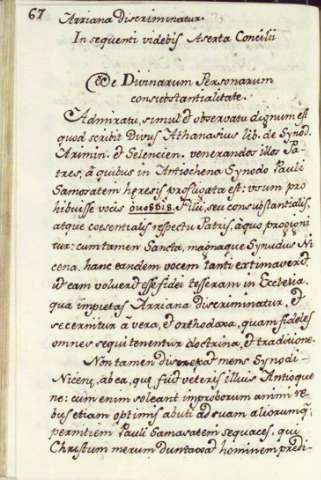 67
Arriana discriminatur.
In seqüenti videbis Aserta Concilii
De Divinarum Personarum
consubstantialitate.
Admiratu, simul et observatu dignum est
quod scribit Divus Athanasius lib. de Synod.
Arimin. et Seleucien. venerandos illos Pa-
tres, á quibus in Antiochena Synodo Pauli
Samosatem heresis profligata est: usum pro
hibuisse vocis Filii, seu consubstantialis,
atque coesentialis respectu Patris, á quo progigni
tur: cum tamen Sancta, magnaque Synodus Ni
cena, hanc eandem vocem tanti extimaverit,
ut eam voluerit esse fidei tesseram in Ecclesia,
qua impietas Arriana discriminatur, et
secernitur á vera, et orthodoxa, quam fideles
omnes sequi tenentur doctrina, et traditione.
Non tamen discrepat mens Synodi
Nicenę, ab ea, quę fuit veteris illius Antioque
nę: cum enim soleant improborum animi re-
bus etiam optimis abuti ad suam aliorumq;
perniciem Pauli Samosatem sequaces, qui
Christum merum duntaxat hominem predi-